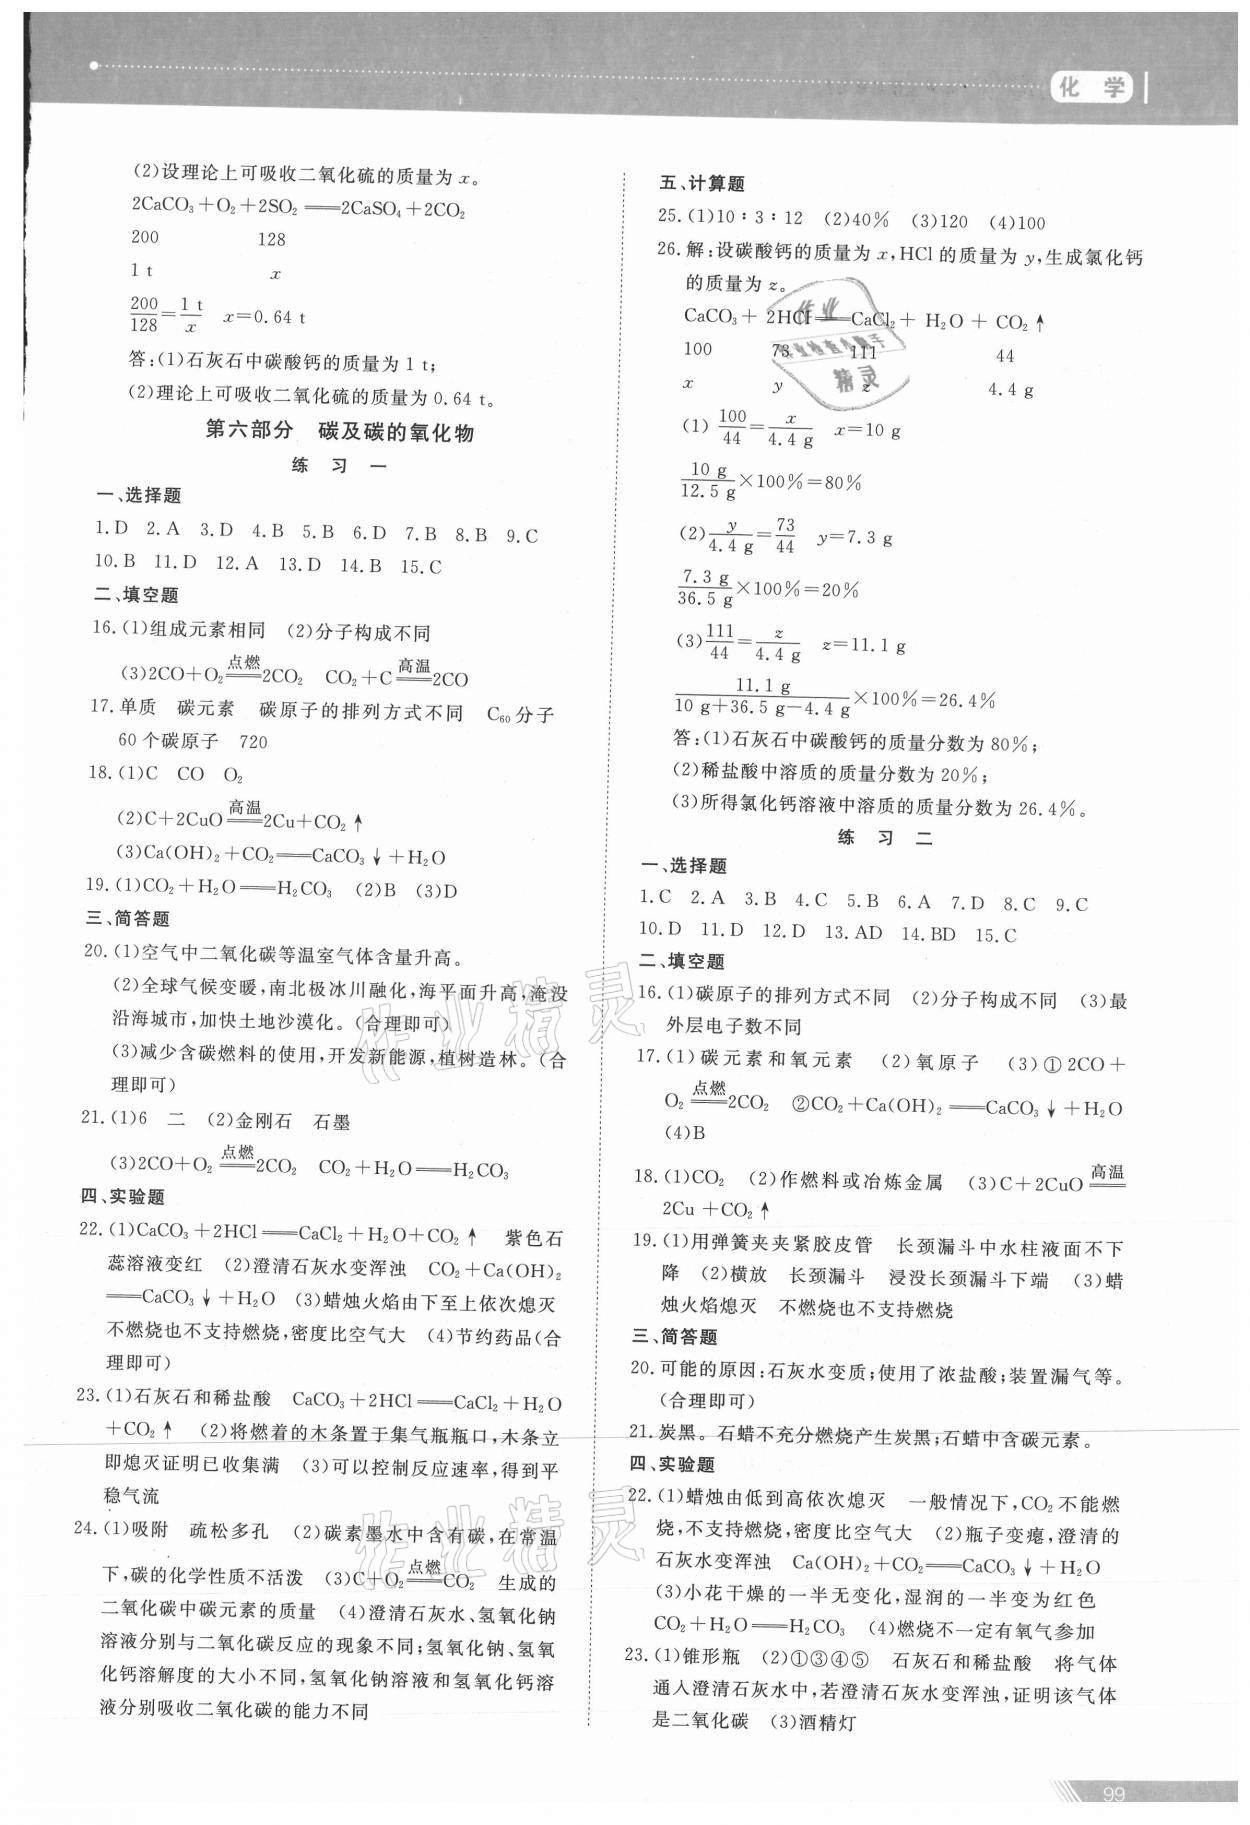 化 学
(2)设理论上可吸收二氧化硫的质量为 x。
2CaCO₃+O₂+2SO₂══2CaSO₄+2CO₂
200 128
1 t x
200/128=1 t/x x=0.64 t
答:(1)石灰石中碳酸钙的质量为 1 t;
(2)理论上可吸收二氧化硫的质量为 0.64 t。
第六部分 碳及碳的氧化物
练 习 一
一、选择题
1.D 2.A 3.D 4.B 5.B 6.D 7.B 8.B 9.C
10.B 11.D 12.A 13.D 14.B 15.C
二、填空题
16.(1)组成元素相同 (2)分子构成不同
(3)2CO+O₂ 点燃══ 2CO₂ CO₂+C 高温══ 2CO
17.单质 碳元素 碳原子的排列方式不同 C₆₀分子
60 个碳原子 720
18.(1)C CO O₂
(2)C+2CuO 高温══ 2Cu+CO₂↑
(3)Ca(OH)₂+CO₂══CaCO₃↓+H₂O
19.(1)CO₂+H₂O══H₂CO₃ (2)B (3)D
三、简答题
20.(1)空气中二氧化碳等温室气体含量升高。
(2)全球气候变暖,南北极冰川融化,海平面升高,淹没
沿海城市,加快土地沙漠化。(合理即可)
(3)减少含碳燃料的使用,开发新能源,植树造林。(合
理即可)
21.(1)6 二 (2)金刚石 石墨
(3)2CO+O₂ 点燃══ 2CO₂ CO₂+H₂O══H₂CO₃
四、实验题
22.(1)CaCO₃+2HCl══CaCl₂+H₂O+CO₂↑ 紫色石
蕊溶液变红 (2)澄清石灰水变浑浊 CO₂+Ca(OH)₂
══CaCO₃↓+H₂O (3)蜡烛火焰由下至上依次熄灭
不燃烧也不支持燃烧,密度比空气大 (4)节约药品(合
理即可)
23.(1)石灰石和稀盐酸 CaCO₃+2HCl══CaCl₂+H₂O
+CO₂↑ (2)将燃着的木条置于集气瓶瓶口,木条立
即熄灭证明已收集满 (3)可以控制反应速率,得到平
稳气流
24.(1)吸附 疏松多孔 (2)碳素墨水中含有碳,在常温
下,碳的化学性质不活泼 (3)C+O₂ 点燃══ CO₂ 生成的
二氧化碳中碳元素的质量 (4)澄清石灰水、氢氧化钠
溶液分别与二氧化碳反应的现象不同;氢氧化钠、氢氧
化钙溶解度的大小不同,氢氧化钠溶液和氢氧化钙溶
液分别吸收二氧化碳的能力不同
五、计算题
25.(1)10∶3∶12 (2)40% (3)120 (4)100
26.解:设碳酸钙的质量为 x,HCl 的质量为 y,生成氯化钙
的质量为 z。
CaCO₃+ 2HCl══CaCl₂+ H₂O + CO₂↑
100 73 111 44
x y z 4.4 g
(1)100/44=x/4.4 g x=10 g
10 g/12.5 g×100%=80%
(2)y/4.4 g=73/44 y=7.3 g
7.3 g/36.5 g×100%=20%
(3)111/44=z/4.4 g z=11.1 g
11.1 g/10 g+36.5 g−4.4 g×100%=26.4%
答:(1)石灰石中碳酸钙的质量分数为 80%;
(2)稀盐酸中溶质的质量分数为 20%;
(3)所得氯化钙溶液中溶质的质量分数为 26.4%。
练 习 二
一、选择题
1.C 2.A 3.B 4.C 5.B 6.A 7.D 8.C 9.C
10.D 11.D 12.D 13.AD 14.BD 15.C
二、填空题
16.(1)碳原子的排列方式不同 (2)分子构成不同 (3)最
外层电子数不同
17.(1)碳元素和氧元素 (2)氧原子 (3)①2CO+
O₂ 点燃══ 2CO₂ ②CO₂+Ca(OH)₂══CaCO₃↓+H₂O
(4)B
18.(1)CO₂ (2)作燃料或冶炼金属 (3)C+2CuO 高温══
2Cu+CO₂↑
19.(1)用弹簧夹夹紧胶皮管 长颈漏斗中水柱液面不下
降 (2)横放 长颈漏斗 浸没长颈漏斗下端 (3)蜡
烛火焰熄灭 不燃烧也不支持燃烧
三、简答题
20.可能的原因:石灰水变质;使用了浓盐酸;装置漏气等。
(合理即可)
21.炭黑。石蜡不充分燃烧产生炭黑;石蜡中含碳元素。
四、实验题
22.(1)蜡烛由低到高依次熄灭 一般情况下,CO₂不能燃
烧,不支持燃烧,密度比空气大 (2)瓶子变瘪,澄清的
石灰水变浑浊 Ca(OH)₂+CO₂══CaCO₃↓+H₂O
(3)小花干燥的一半无变化,湿润的一半变为红色
CO₂+H₂O══H₂CO₃ (4)燃烧不一定有氧气参加
23.(1)锥形瓶 (2)①③④⑤ 石灰石和稀盐酸 将气体
通入澄清石灰水中,若澄清石灰水变浑浊,证明该气体
是二氧化碳 (3)酒精灯
作业精灵
作业精灵
作业
精灵
99